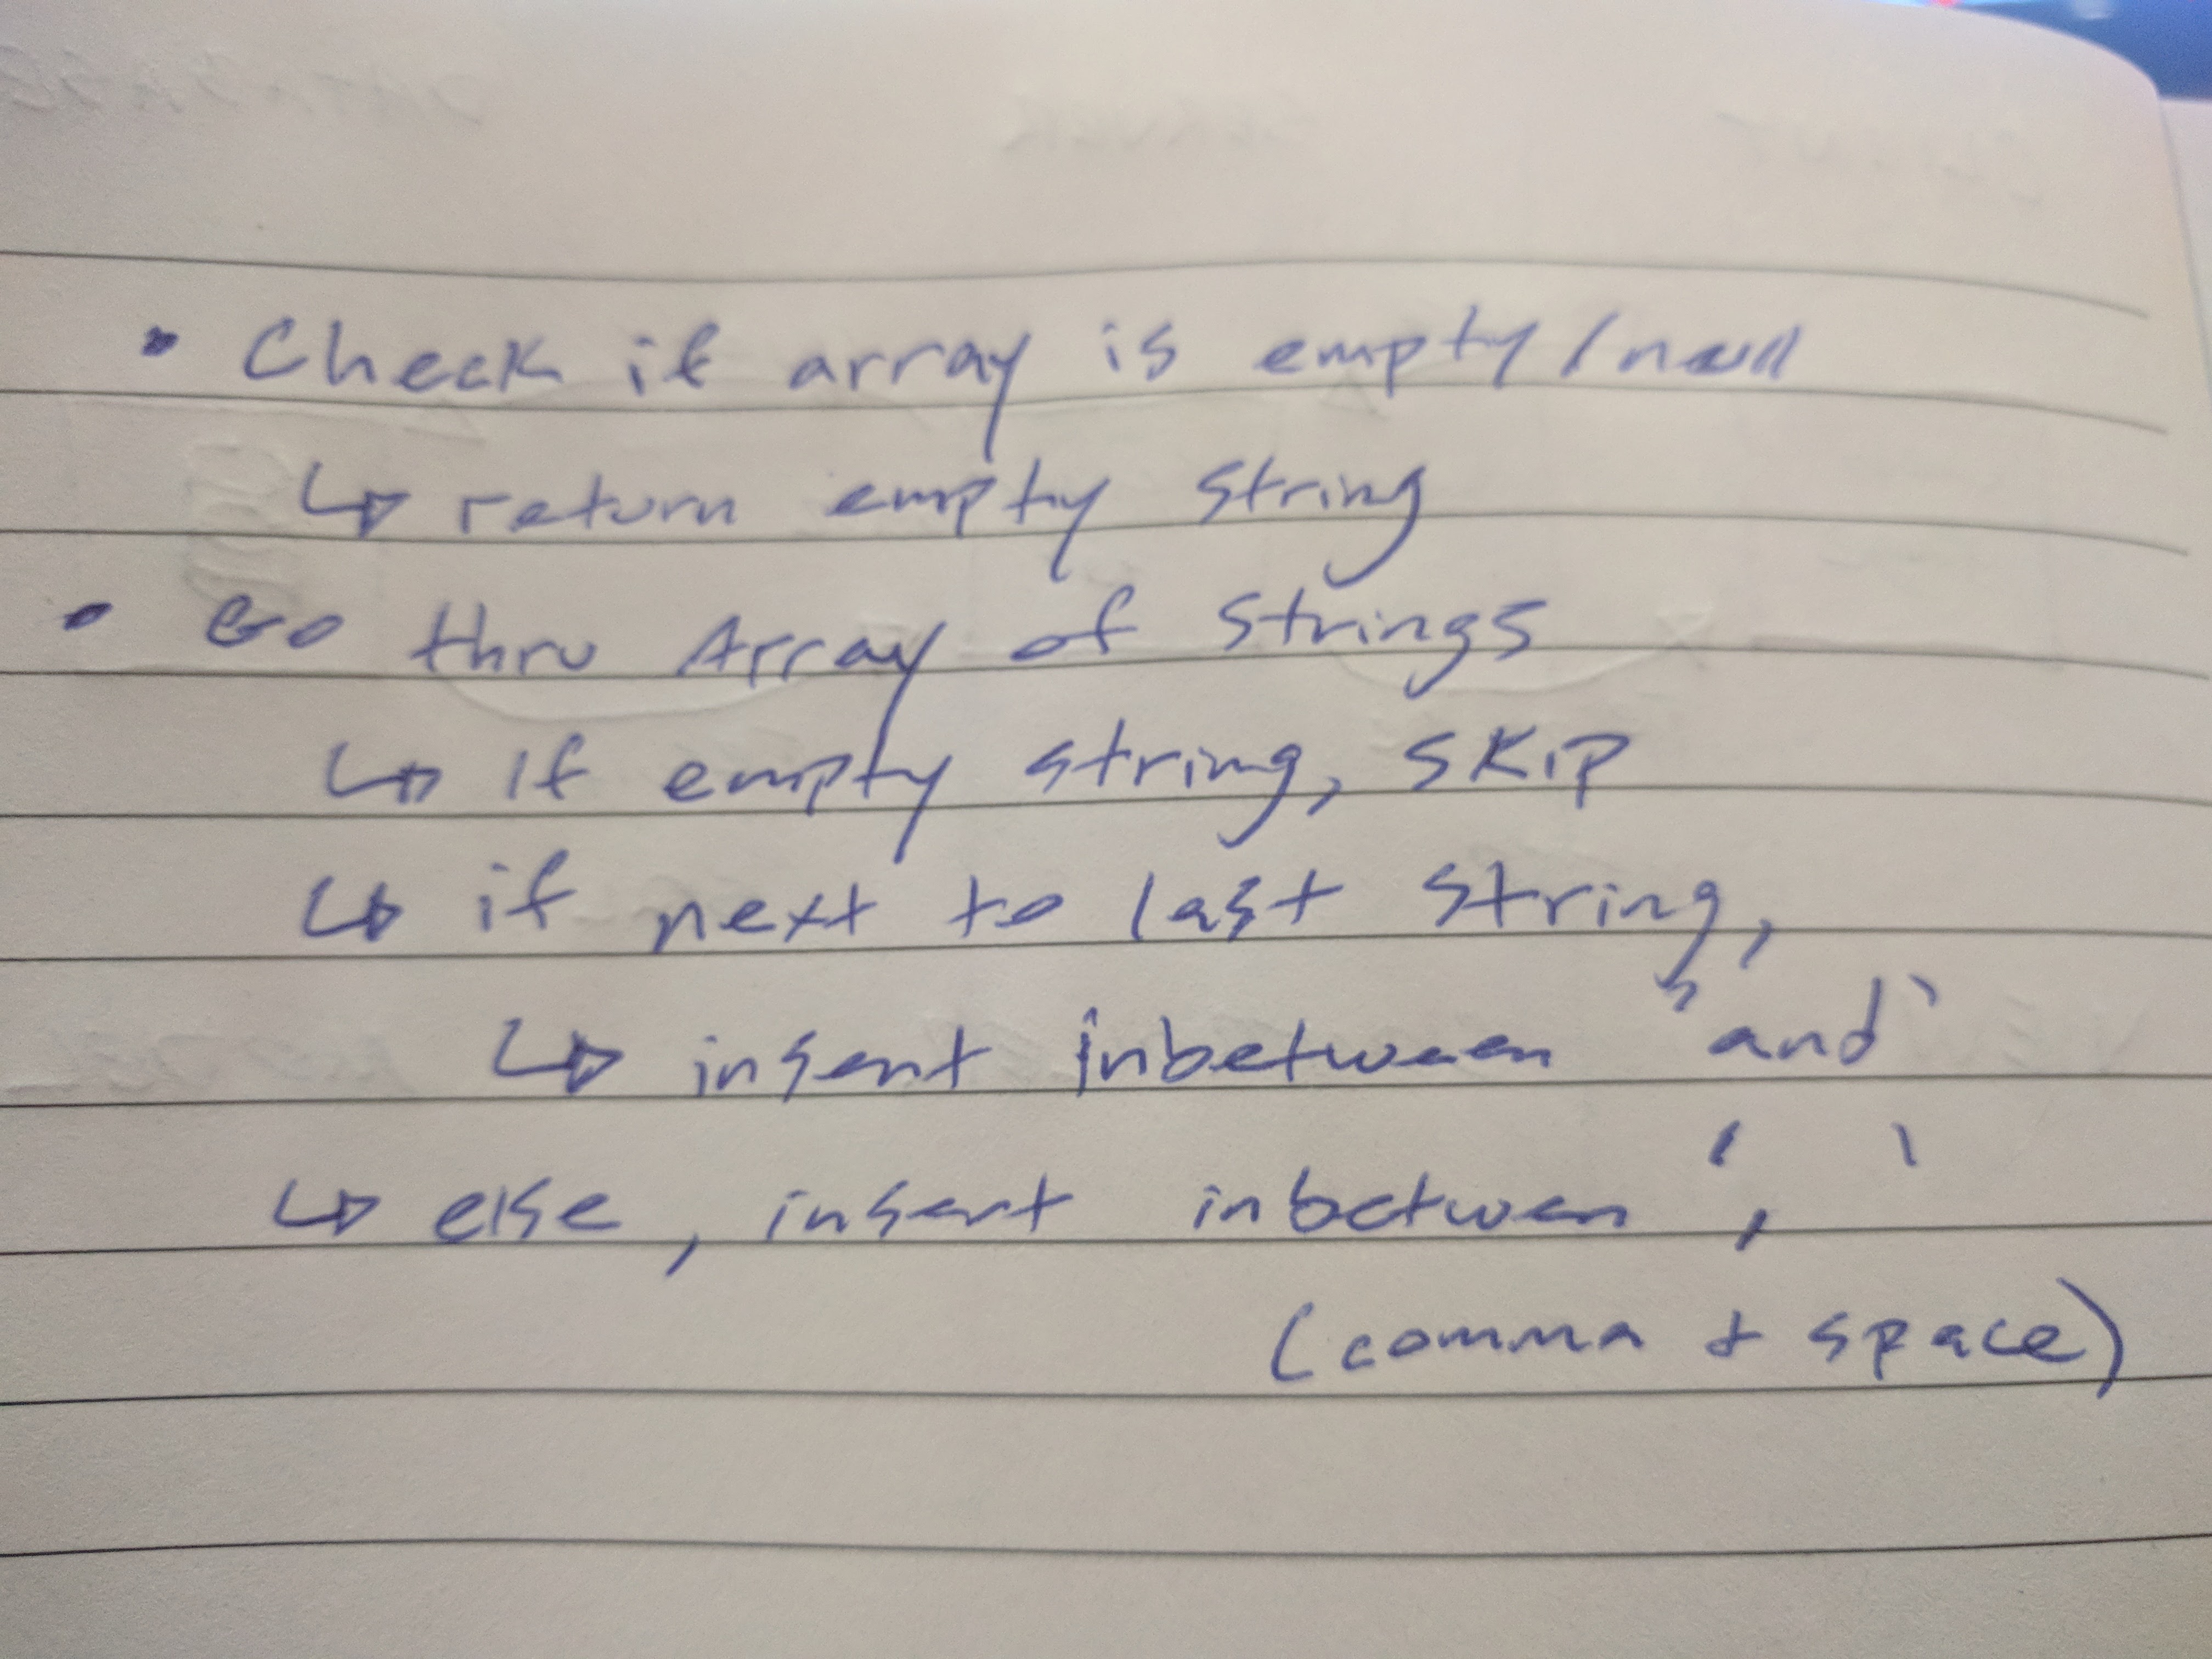 • Check if array is empty/null
↳ return empty string
• Go thru Array of strings
↳ If empty string, skip
↳ if next to last string,
↳ insert inbetween 'and'
↳ else, insert inbetween ', '
(comma + space)